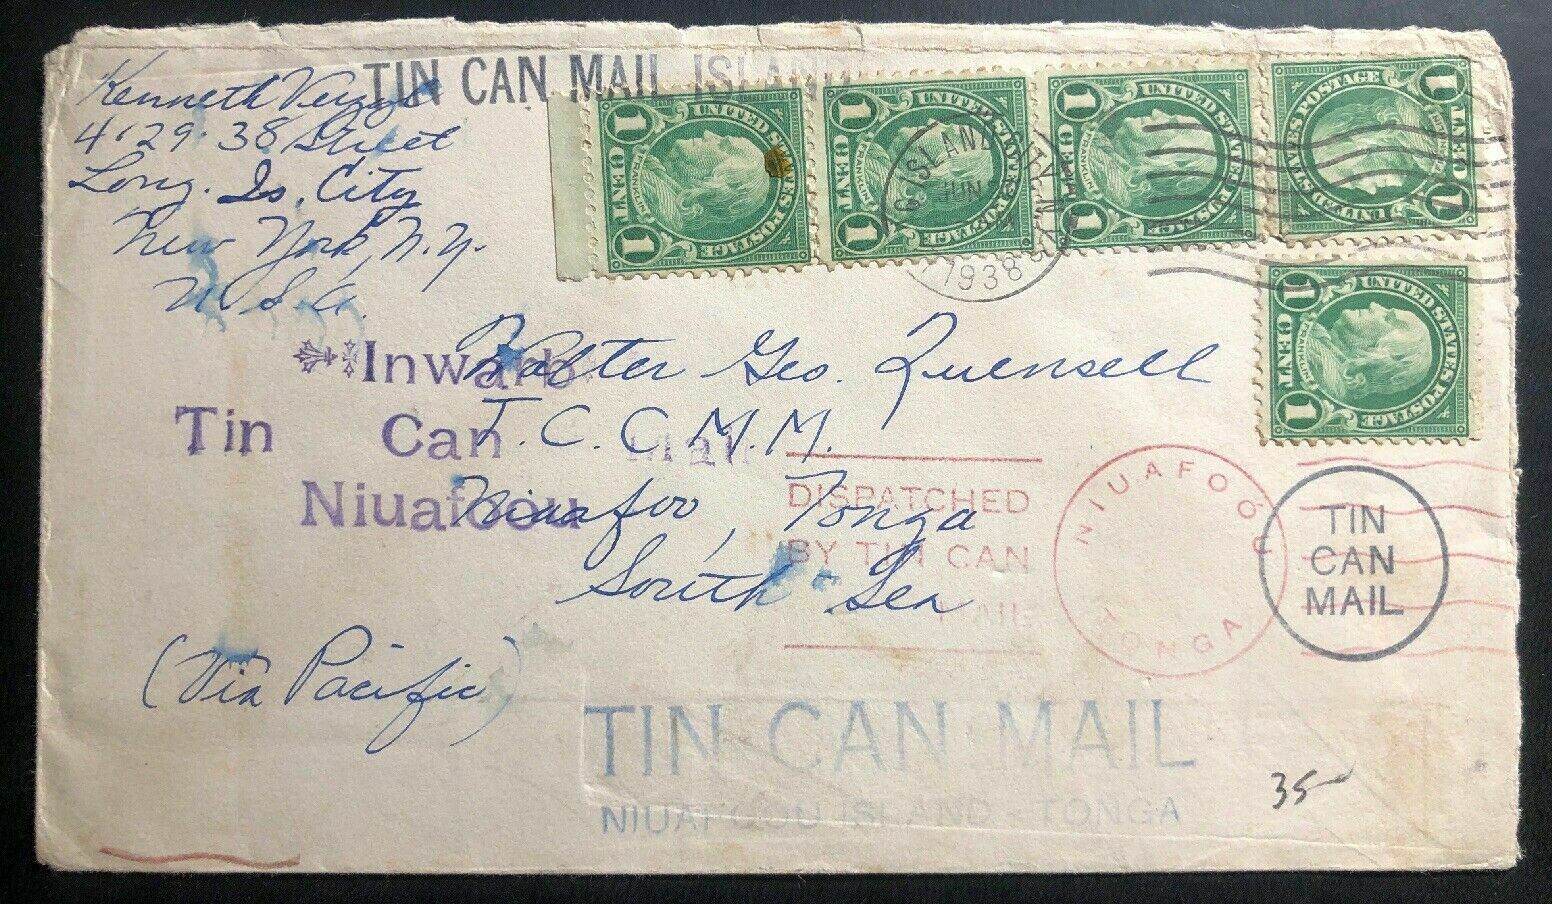 TIN CAN MAIL ISLAND
Kenneth
4·29·38 Street
Long. Is. City
New York, N.Y.
U.S.A.
UNITED STATES POSTAGE
1 CENT 1
FRANKLIN
UNITED STATES POSTAGE
1 CENT 1
FRANKLIN
UNITED STATES POSTAGE
1 CENT 1
FRANKLIN
UNITED STATES POSTAGE
1 CENT 1
UNITED STATES POSTAGE
1 CENT 1
FRANKLIN
ISLAND CITY N.Y.
JUN
1938
Inward
Tin Can Mail
Niuafoou
Walter Geo. Quensell
T.C.C.M.M.
Niuafoo, Tonga
South Sea
(Via Pacific)
DISPATCHED
BY TIN CAN
MAIL
NIUAFOÓU
TONGA
TIN
CAN
MAIL
TIN CAN MAIL
NIUAFOOU ISLAND - TONGA
35-